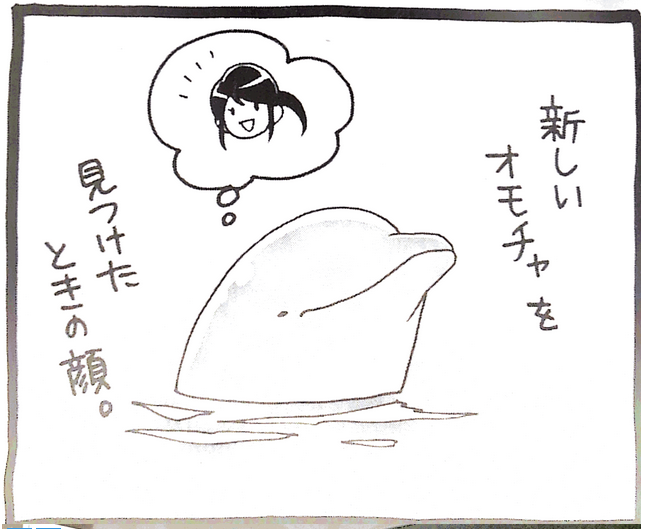 新しい
オモチャを
見つけた
ときの顔。